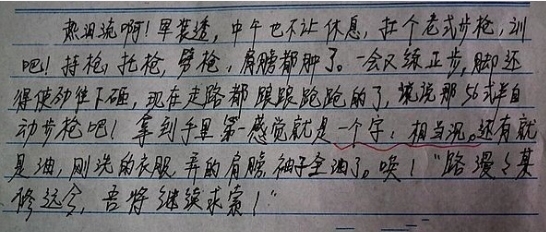 热泪流啊!早装透,中午也不让休息,扛个老式步枪,训
吧!持枪,托枪,劈枪,肩膀都肿了。一会又练正步,脚还
得使劲往下砸,现在走路都踉踉跑跑的了,就说那56式半自
动步枪吧!拿到手里第一感觉就是一个字:相当沉。还有就
是油,刚洗的衣服弄的肩膀袖子全油了。唉!“路漫々其
修远兮,吾将继续求索!”